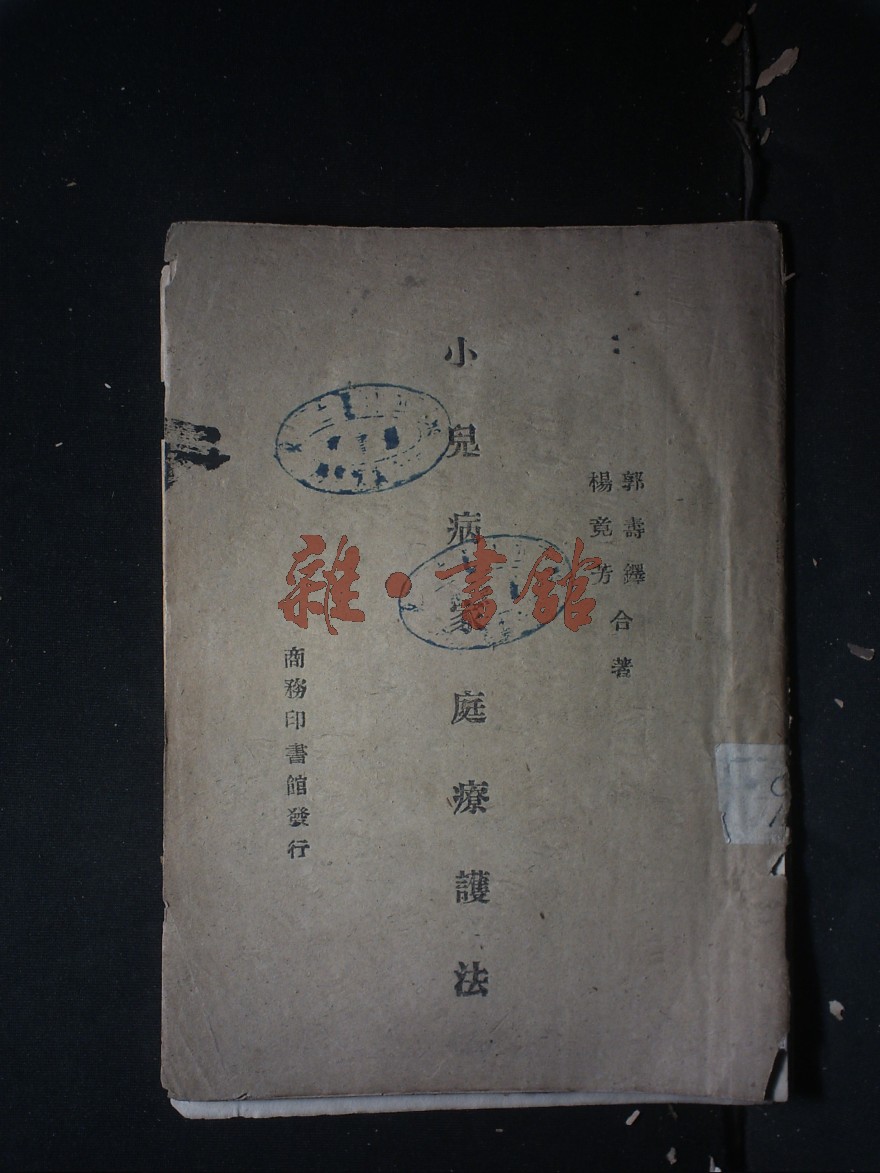 郭壽鐸
楊竟芳
合著
小兒病家庭療護法
商務印書館發行
雜·書館